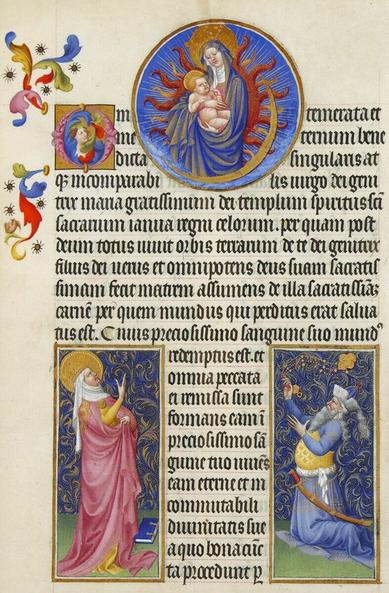 O m temerata et
me ternum bene
dicta singularis at
q̄ incomparabi lis uirgo dei geni
trix maria gratissimum dei templum spiritus sc̄i
sacrarium ianua regni celorum. per quam post
deum totus uiuit orbis terrarum de te dei genitrix
filius dei uerus et omnipotens deus suam sacratis
simam fecit matrem assumens de illa sacratissiā
carnē per quem mundus qui perditus erat salua
tus est. Cuius preciosissimo sanguine suo mundꝰ
redemptus est. et
omnia peccata
ei remissa sunt
formans eam
preciosissimo sā
guine tuo
eam eterne et in
commutabili
diuinitatis sue
a quo bona cūc
ta procedunt ꝑ